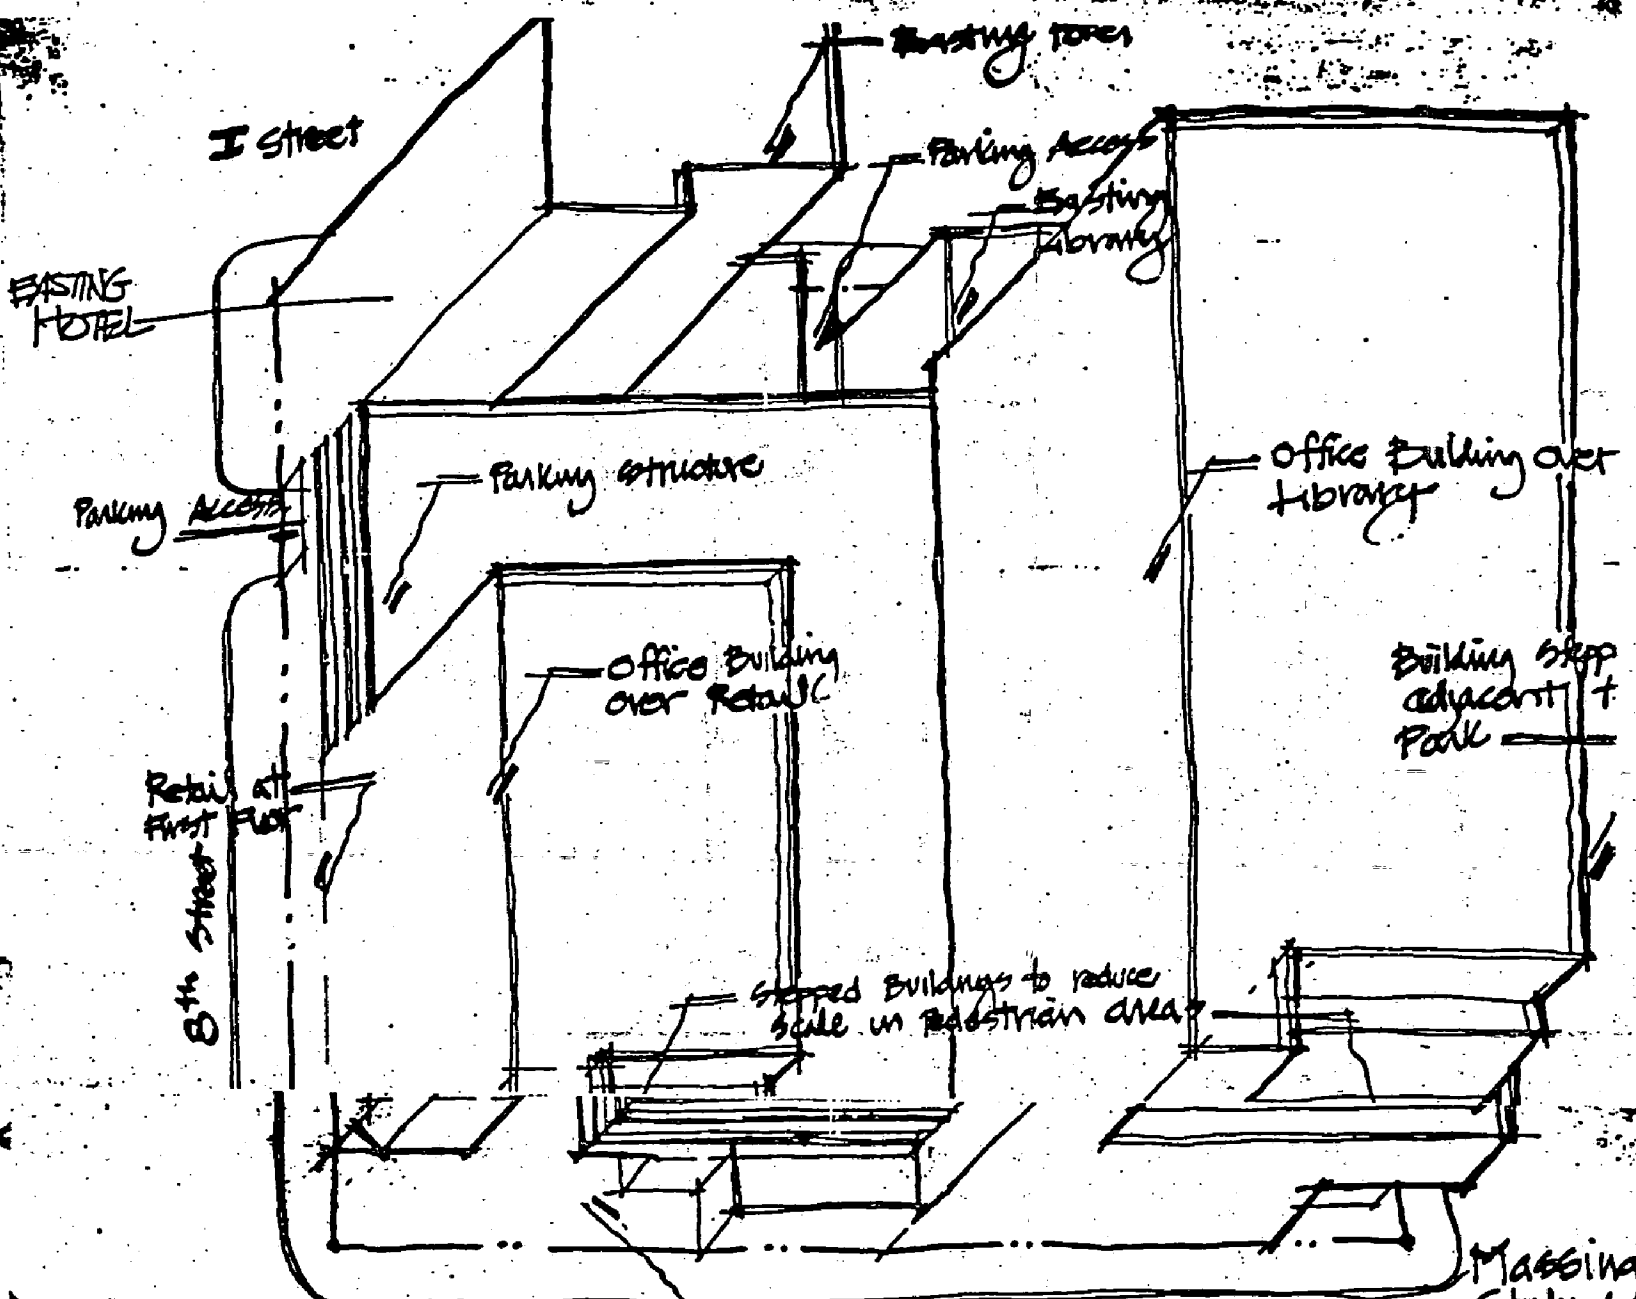 I Street
Parking Access
Library
EASTING
HOTEL
Parking Structure
Parking Access
Office Building over
Library
Office Building
over Retail
Building Stepp
adjacent t
Park
Retail at
First Floor
8th Street
Stepped Buildings to reduce
scale in Pedestrian areas
Massing